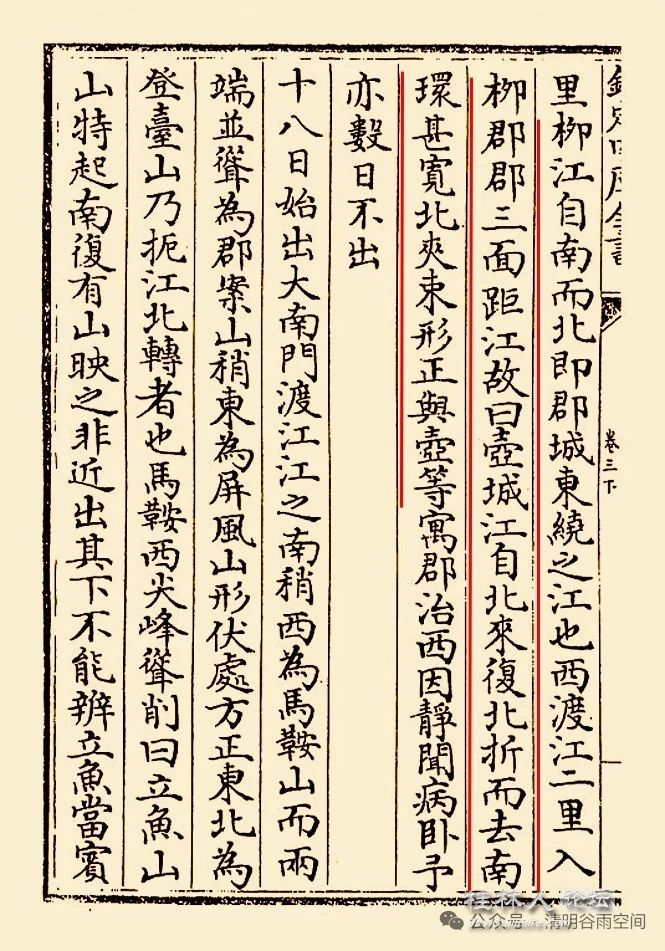 欽定四庫全書
卷三下
里栁江自南而北即郡城東繞之江也西渡江二里入
栁郡郡三面距江故曰壺城江自北來復北折而去南
環甚寛北夾束形正與壺等寓郡治西因靜聞病卧予
亦數日不出
十八日始出大南門渡江江之南稍西為馬鞍山而兩
端並聳為郡案山稍東為屏風山形伏處方正東北為
登臺山乃扼江北轉者也馬鞍西尖峰聳削曰立魚山
山特起南復有山映之非近出其下不能辨立魚當賓
桂林人论坛
公众号·清明谷雨空间